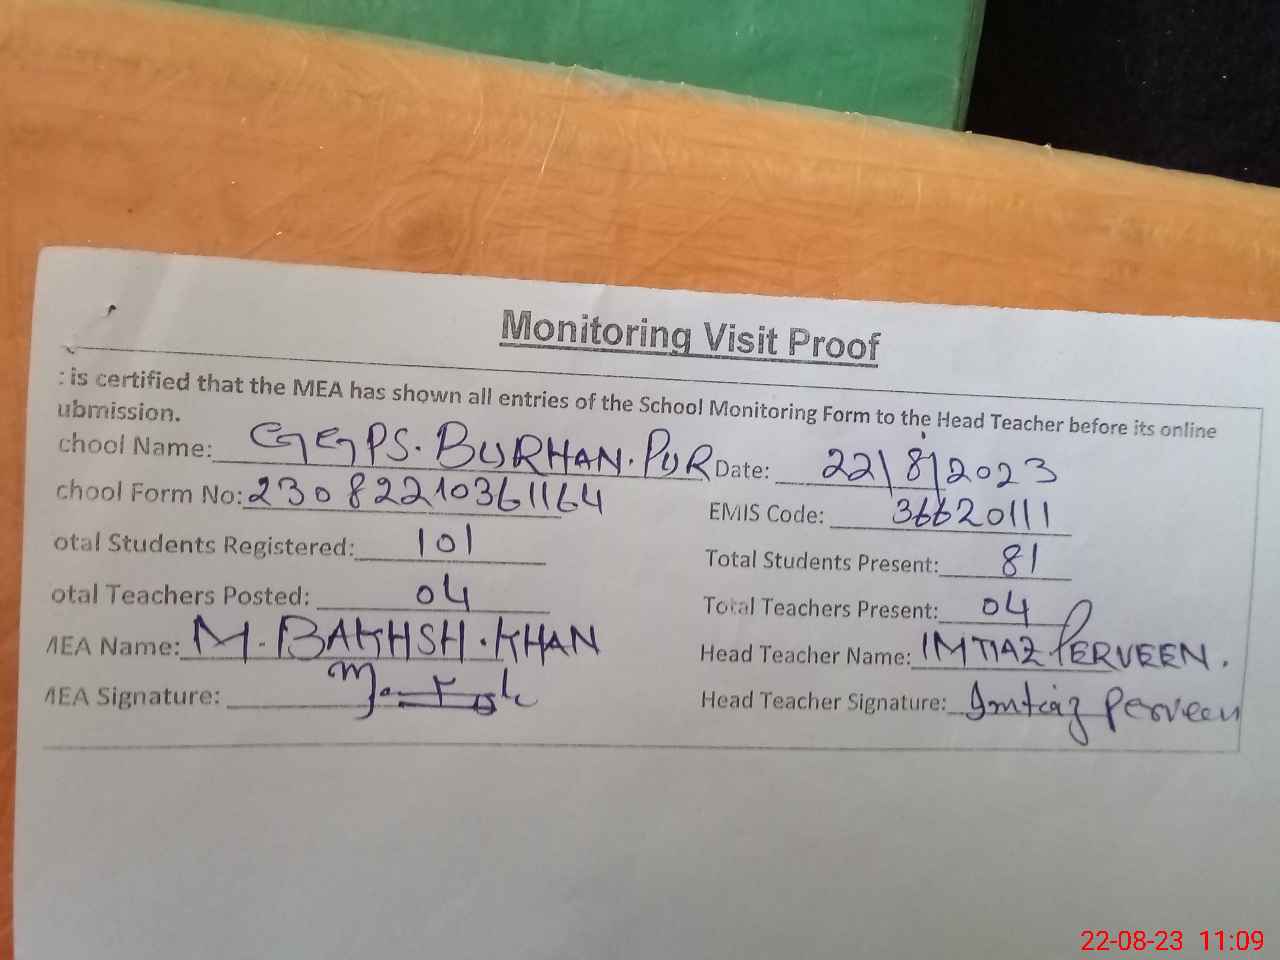 Monitoring Visit Proof
: is certified that the MEA has shown all entries of the School Monitoring Form to the Head Teacher before its online
ubmission.
chool Name: GGPS. BURHAN. PUR Date: 22\8\2023
chool Form No: 23082210361164 EMIS Code: 36620111
otal Students Registered: 101 Total Students Present: 81
otal Teachers Posted: 04 Total Teachers Present: 04
MEA Name: M. BAKHSH. KHAN Head Teacher Name: IMTIAZ PERVEEN.
MEA Signature: Head Teacher Signature: Imtiaz Perveen
22-08-23 11:09